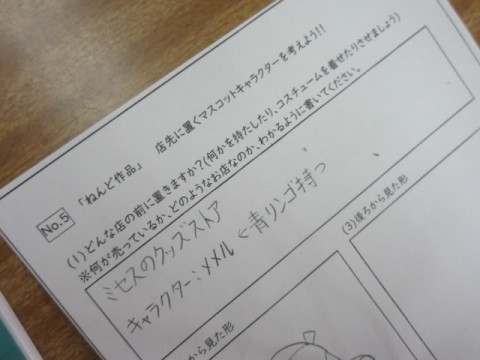 No.5
「ねんど作品」 店先に置くマスコットキャラクターを考えよう!!
(1)どんな店の前に置きますか?(何かを持たしたり、コスチュームを着せたりさせましょう)
※何が売っているか、どのようなお店なのか、わかるように書いてください。
ミセスのグッズストア
キャラクター:メメル ← 青リンゴ持つ
から見た形
(3)後ろから見た形